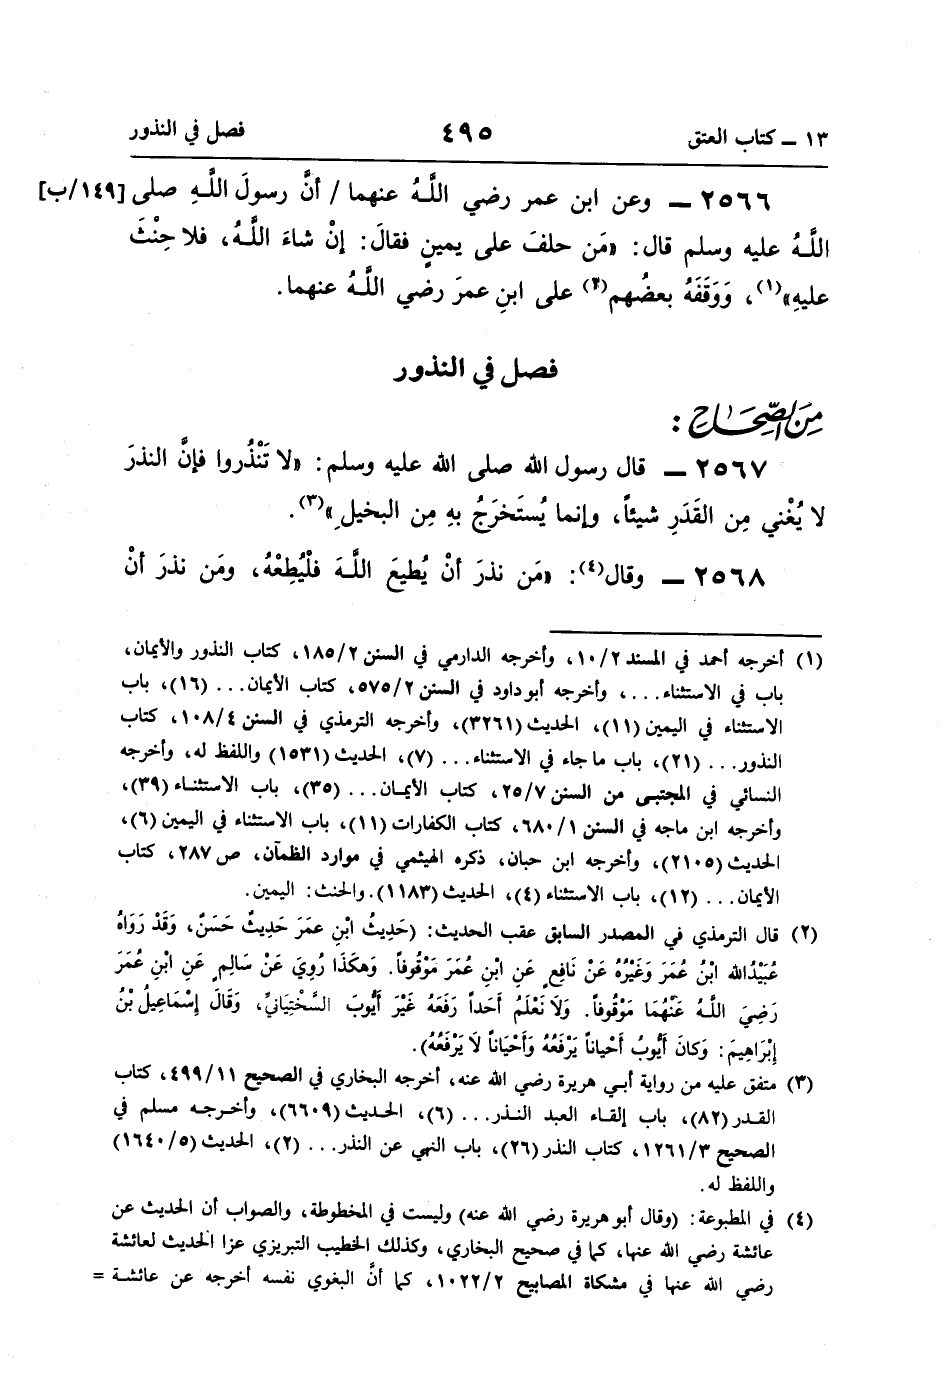 ١٣ ــ كتاب العتق ٤٩٥ فصل في النذور
٢٥٦٦ ــ وعن ابن عمر رضي اللَّهُ عنهما / أنَّ رسولَ اللَّهِ صلى [١٤٩/ب]
اللَّهُ عليه وسلم قال: «مَن حلفَ على يمينٍ فقالَ: إنْ شاءَ اللَّهُ، فلا حِنْثَ
عليهِ»(١)، وَوَقَفَهُ بعضُهم(٢) على ابنِ عمرَ رضي اللَّهُ عنهما.
فصل في النذور
مِنَ الصِّحَاحِ :
٢٥٦٧ ــ قال رسول الله صلى الله عليه وسلم: «لا تَنْذُروا فإنَّ النذرَ
لا يُغْني مِن القَدَرِ شيئاً، وإنما يُستَخرَجُ بهِ مِن البخيلِ»(٣).
٢٥٦٨ ــ وقال(٤): «مَن نذرَ أنْ يُطيعَ اللَّهَ فلْيُطِعْهُ، ومَن نذرَ أنْ
(١) أخرجه أحمد في المسند ١٠/٢، وأخرجه الدارمي في السنن ١٨٥/٢، كتاب النذور والأيمان،
باب في الاستثناء...، وأخرجه أبو داود في السنن ٥٧٥/٢، كتاب الأيمان... (١٦)، باب
الاستثناء في اليمين (١١)، الحديث (٣٢٦١)، وأخرجه الترمذي في السنن ١٠٨/٤، كتاب
النذور... (٢١)، باب ما جاء في الاستثناء... (٧)، الحديث (١٥٣١) واللفظ له، وأخرجه
النسائي في المجتبى من السنن ٢٥/٧، كتاب الأيمان... (٣٥)، باب الاستثناء (٣٩)،
وأخرجه ابن ماجه في السنن ٦٨٠/١، كتاب الكفارات (١١)، باب الاستثناء في اليمين (٦)،
الحديث (٢١٠٥)، وأخرجه ابن حبان، ذكره الهيثمي في موارد الظمآن، ص ٢٨٧، كتاب
الأيمان... (١٢)، باب الاستثناء (٤)، الحديث (١١٨٣). والحنث: اليمين.
(٢) قال الترمذي في المصدر السابق عقب الحديث: (حَدِيثُ ابْنِ عمَرَ حَدِيثٌ حَسَنٌ، وَقَدْ رَوَاهُ
عُبَيْدُالله ابْنُ عُمَرَ وَغَيْرُهُ عَنْ نَافِعٍ عَنِ ابْنِ عُمَرَ مَوْقُوفاً. وَهكَذَا رُوِيَ عَنْ سَالِمٍ عَنِ ابْنِ عُمَرَ
رَضِيَ اللَّهُ عَنْهُمَا مَوْقُوفاً. وَلاَ نَعْلَمُ أَحَداً رَفَعَهُ غَيْرَ أَيُّوبَ السَّخْتِيَانِيِّ، وَقَالَ إِسْمَاعِيلُ بْنُ
إِبْرَاهِيمَ: وَكانَ أَيُّوبُ أَحْيَاناً يَرْفَعُهُ وَأَحْيَاناً لاَ يَرْفَعُهُ).
(٣) متفق عليه من رواية أبي هريرة رضي الله عنه، أخرجه البخاري في الصحيح ٤٩٩/١١، كتاب
القدر (٨٢)، باب إلقاء العبد النذر... (٦)، الحديث (٦٦٠٩)، وأخرجه مسلم في
الصحيح ١٢٦١/٣، كتاب النذر (٢٦)، باب النهي عن النذر... (٢)، الحديث (١٦٤٠/٥)
واللفظ له.
(٤) في المطبوعة: (وقال أبو هريرة رضي الله عنه) وليست في المخطوطة، والصواب أن الحديث عن
عائشة رضي الله عنها، كما في صحيح البخاري، وكذلك الخطيب التبريزي عزا الحديث لعائشة
رضي الله عنها في مشكاة المصابيح ١٠٢٢/٢، كما أنَّ البغوي نفسه أخرجه عن عائشة =